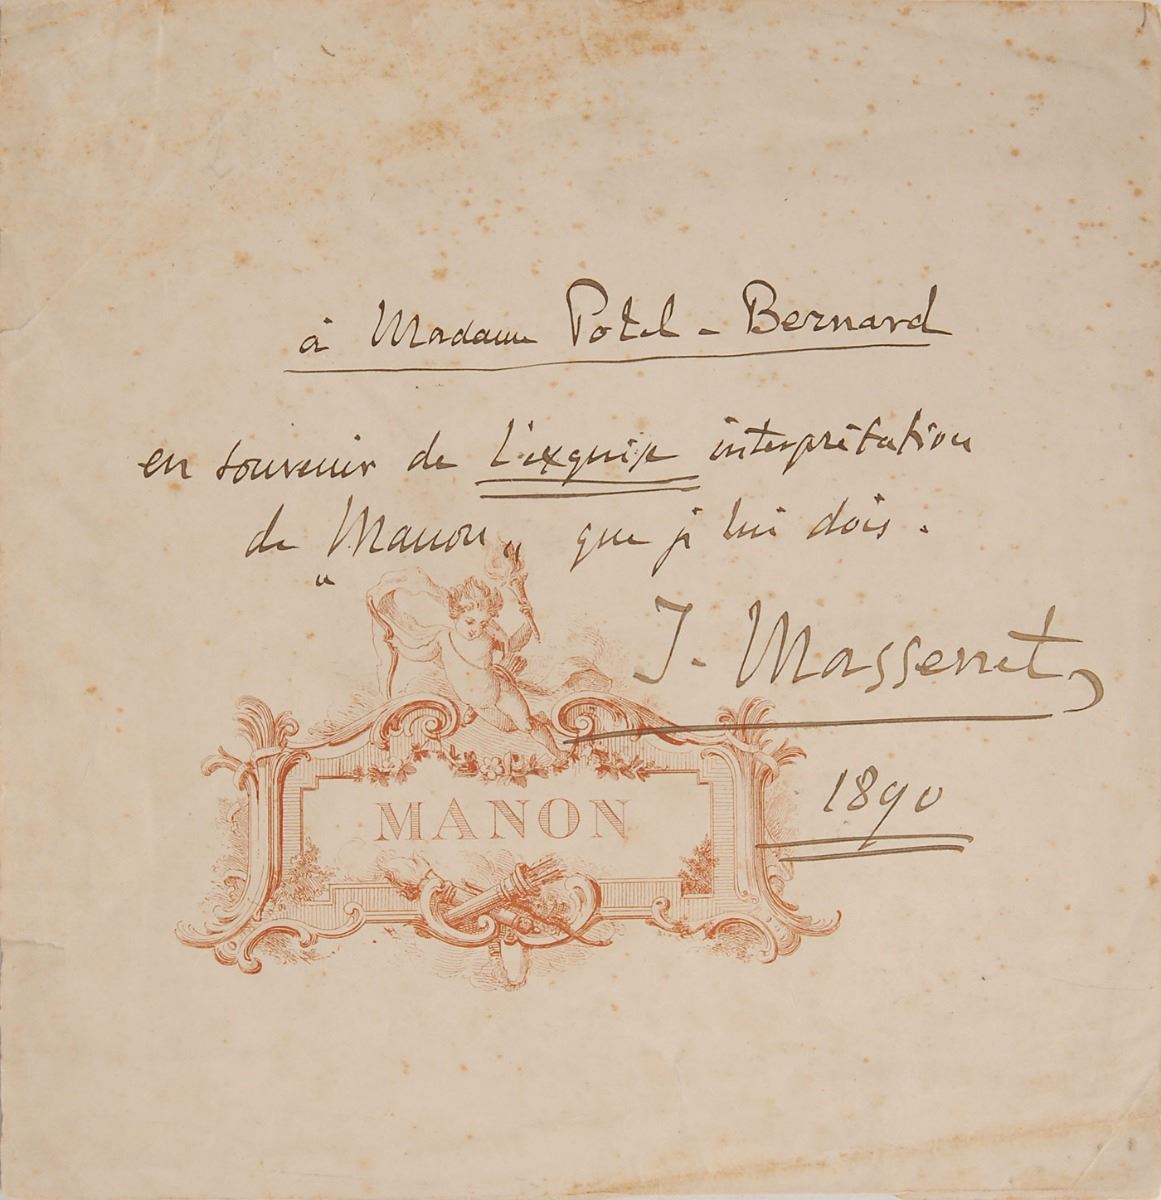 à Madame Potel-Bernard
en souvenir de l'exquise interprétation
de "Manon" que je lui dois.
J. Massenet
1890
MANON